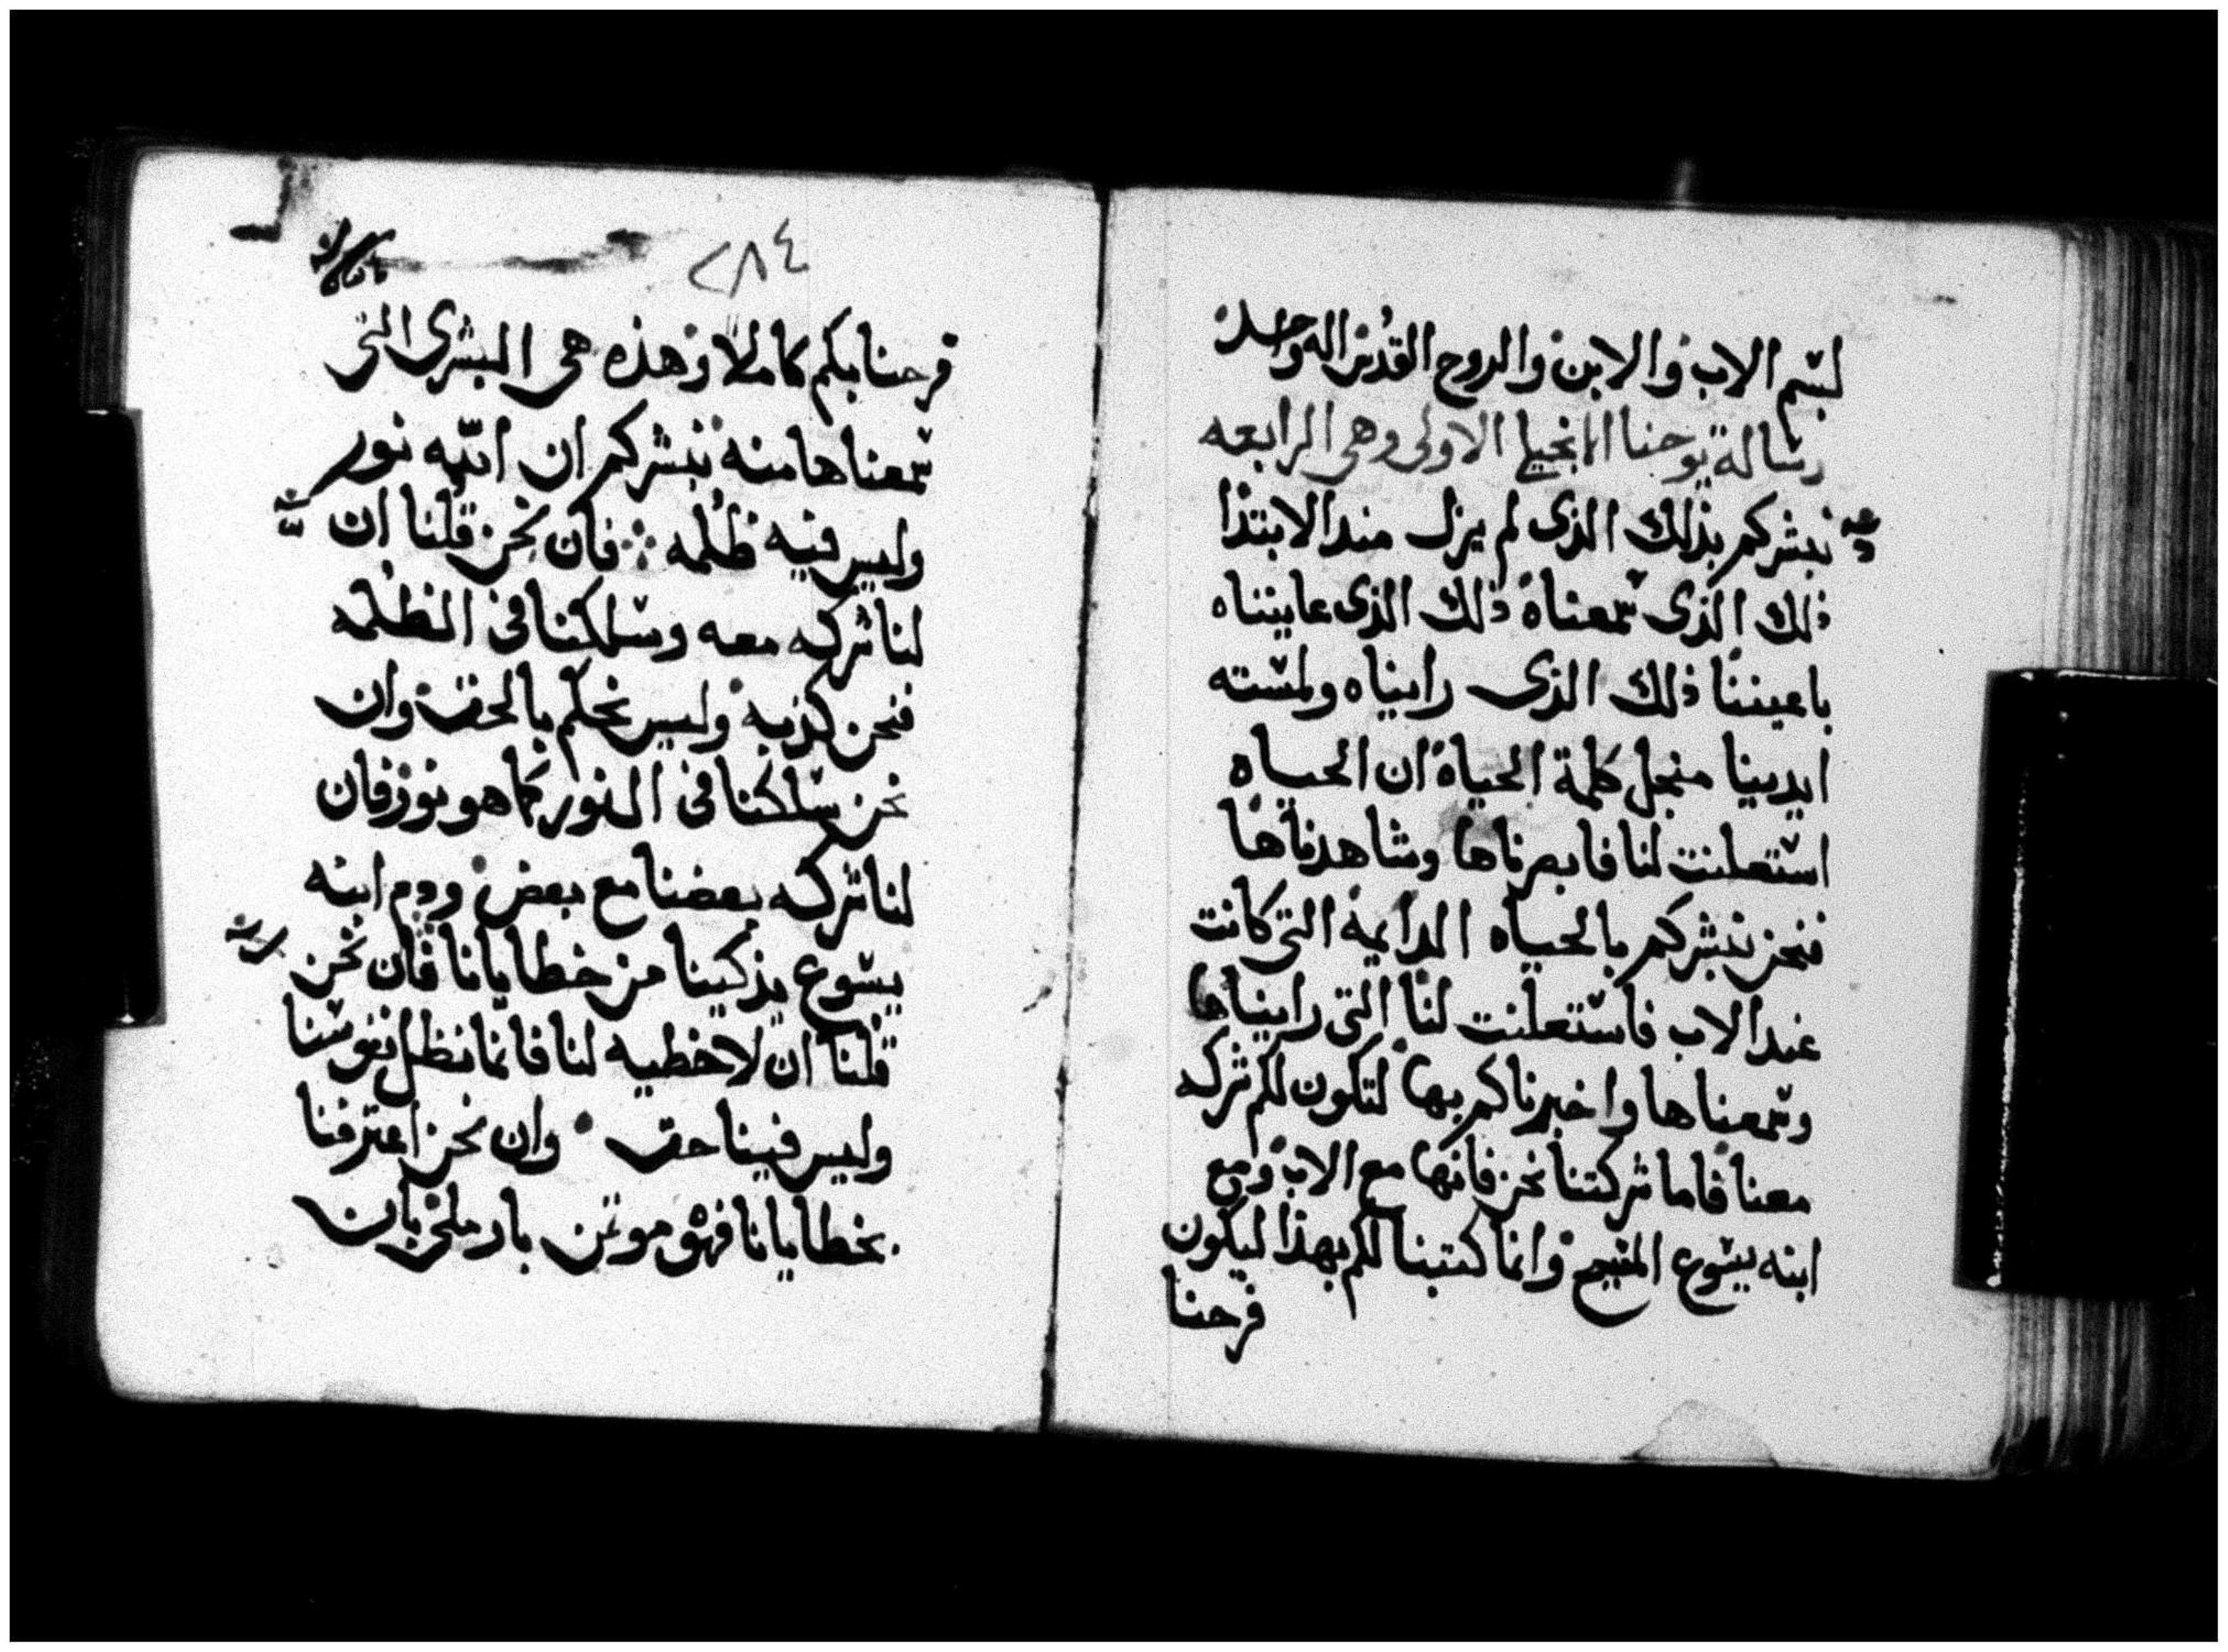 بسم الاب والابن والروح القدس اله واحد
رسالة يوحنا الاولى وهى الرابعه
نبشركم بذلك الذى لم يزل منذ الابتدا
ذلك الذى سمعناه ذلك الذى عايناه
باعيننا ذلك الذى رايناه ولمسته
ايدينا منجل كلمة الحياة ان الحياه
استعلنت لنا فابصرناها وشاهدناها
فنحن نبشركم بالحياه الدايمة التى كانت
عند الاب فاستعلنت لنا التى رايناها
وسمعناها واخبرناكم بها لتكون لكم شركه
معنا فاما شركتنا نحن فانها مع الاب ومع
ابنه يسوع المسيح وانما كتبنا لكم بهذا ليكون
فرحنا
٢٨٤
فرحنا بكم كاملا وهذه هى البشرى التى
سمعناها منه نبشركم ان الله نور
وليس فيه ظلمه فان نحن قلنا ان
لنا شركه معه وسلكنا فى الظلمه
فنحن كذبه وليس بالحق وان
نحن سلكنا فى النور كما هو نور فان
لنا شركه بعضنا مع بعض ودم ابنه
يسوع يذكينا من خطايانا فان نحن
قلنا ان لا خطيه لنا فانما نظل نفوسنا
وليس فينا حق وان نحن اعترفنا
بخطايانا فهو موتمن بار ملى بان